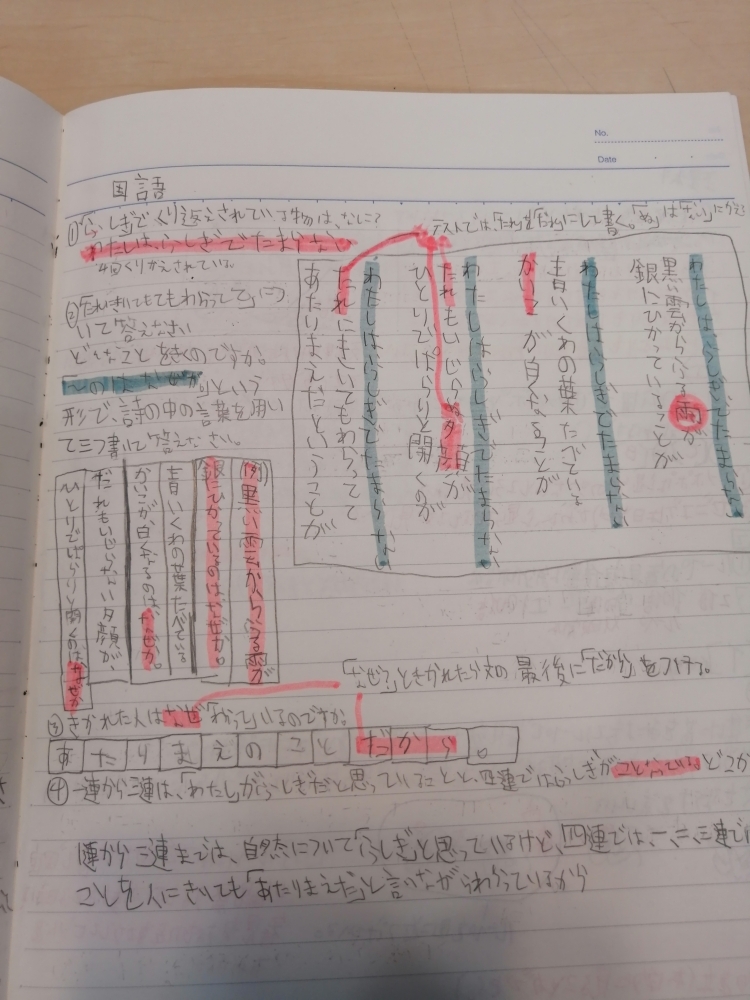 No.
Date
国語
①ふしぎでくり返されている物は、なに?
わたしはふしぎでたまらない
4回くりかえされている。
テストでは、「たれ」を「だれ」にして書く。「ぬ」は「ない」にかえる
わたしはふしぎでたまらない、
黒い雲からふる雨が
銀にひかっていることが
わたしはふしぎでたまらない、
青いくわの葉たべている
かいこが白くなることが
わたしはふしぎでたまらない、
たれもいじらぬ夕顔が
ひとりでぱらりと開くのが
わたしはふしぎでたまらない、
たれにきいてもわらってて
あたりまえだということが
②「たれにきいてもわらってて」につ
いて答えなさい
どんなことをきくのですか。
「〜のはなぜか。」という
形で、詩の中の言葉を用い
て三つ書いて答えなさい。
(例)黒い雲からふる雨が
銀にひかっているのはなぜか。
青いくわの葉たべている
かいこが、白くなるのはなぜか。
だれもいじらない夕顔が、
ひとりでぱらりと開くのはなぜか
「なぜ?」ときかれたら文の最後に「だから」をつける。
③きかれた人はなぜ「わらって」いるのですか。
あたりまえのことだから。
④一連から三連は、「わたし」がふしぎだと思っていることと、四連ではふしぎがことなっている。どこが
1連から三連までは、自然について「ふしぎ」と思っているけど、四連では、一、二、三連で
ことを人にきいても「あたりまえだ」と言いながらわらっているから